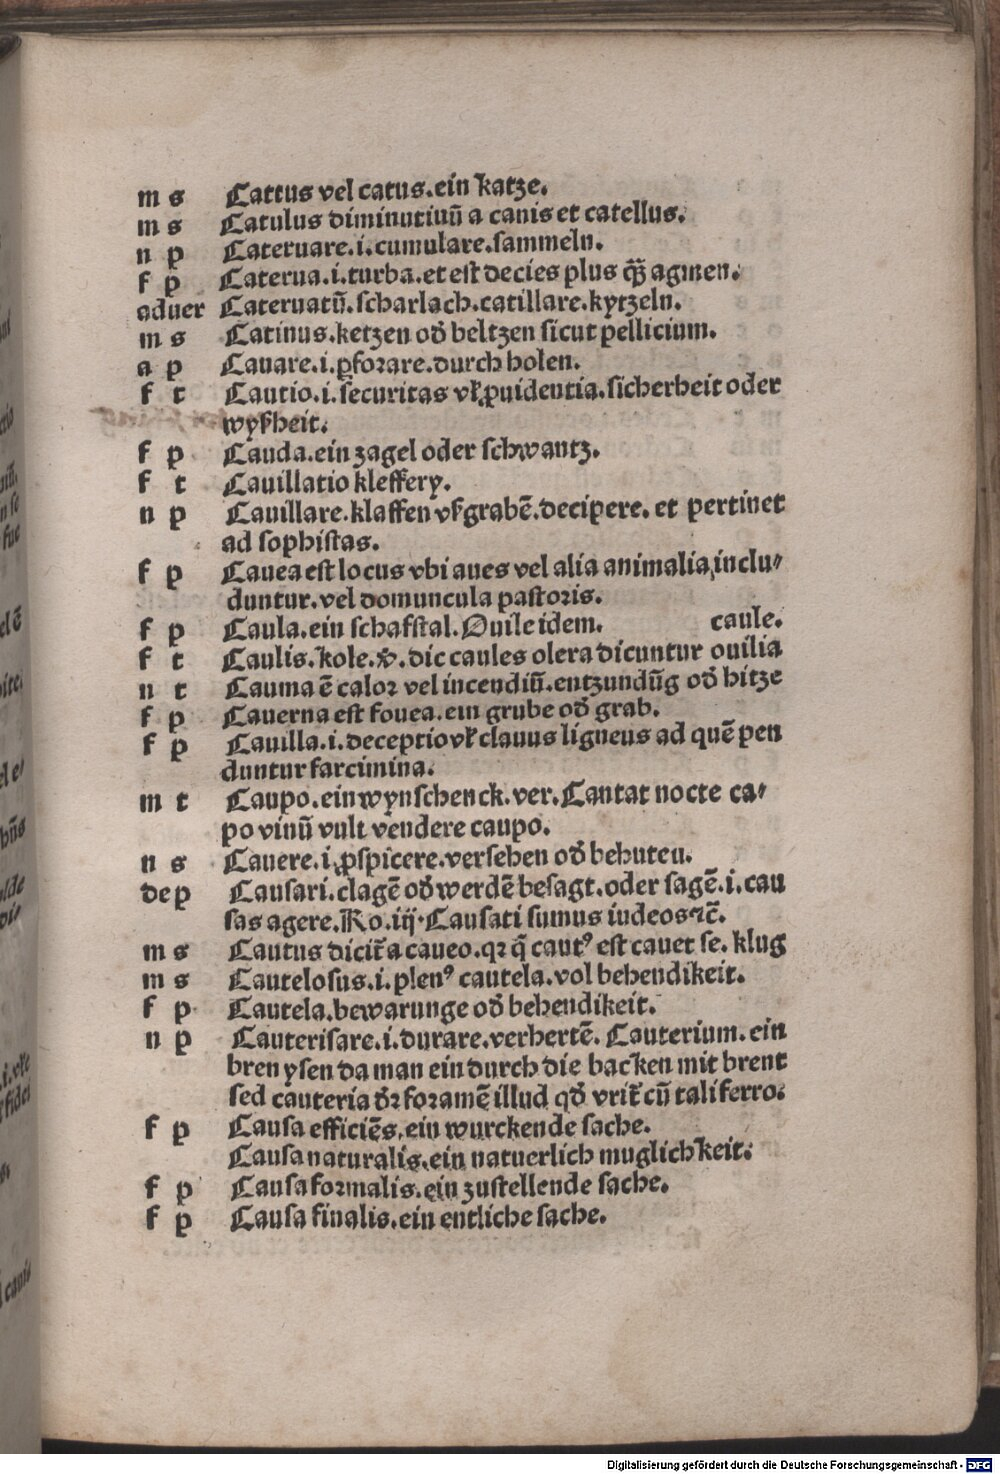 m s Cattus vel catus.ein katze.
m s Catulus diminutiuū a canis et catellus.
n p Cateruare.i.cumulare.sammeln.
f p Caterua.i.turba.et est decies plus qȝ̄ agmen.
aduer Cateruatū.scharlach.catillare.kytzeln.
m s Catinus.ketzen od̕ beltzen sicut pellicium.
a p Cauare.i.ꝑforare.durch holen.
f t Cautio.i.securitas vł ꝓuidentia.sicherheit oder
wyßheit.
f p Cauda.ein zagel oder schwantz.
f t Cauillatio kleffery.
n p Cauillare.klaffen vßgrabē.decipere. et pertinet
ad sophistas.
f p Cauea est locus vbi aues vel alia animalia inclu⸗
duntur.vel domuncula pastoris.
f p Caula.ein schafstal.Ouile idem. caule.
f t Caulis.kole.v̕.dic caules olera dicuntur ouilia
n t Cauma ē calor vel incendiū.entzundūg od̕ hitze
f p Cauerna est fouea.ein grube od̕ grab.
f p Cauilla.i.deceptio vł clauus ligneus ad quē pen
duntur farcimina.
m t Caupo.ein wynschenck.ver.Cantat nocte ca⸗
po vinū vult vendere caupo.
n s Cauere.i.ꝓspicere.versehen od̕ behuten.
de p Causari.clagē od̕ werdē besagt.oder sagē.i.cau
sas agere.Ro.iij.Causati sumus iudeos ⁊c̄.
m s Cautus dicit̄ a caueo.qꝛ q̄ cautꝰ est cauet se. klug
m s Cautelosus.i.plenꝰ cautela.vol behendikeit.
f p Cautela.bewarunge od̕ behendikeit.
n p Cauterisare.i.durare.verhertē. Cauterium. ein
bren ysen da man ein durch die backen mit brent
sed cauteria d̕ꝛ foramē illud qd̕ vrit̄ cū tali ferro.
f p Causa efficiēs.ein wurckende sache.
Causa naturalis.ein natuerlich muglichkeit.
f p Causa formalis.ein zustellende sache.
f p Causa finalis.ein entliche sache.
Digitalisierung gefördert durch die Deutsche Forschungsgemeinschaft - DFG